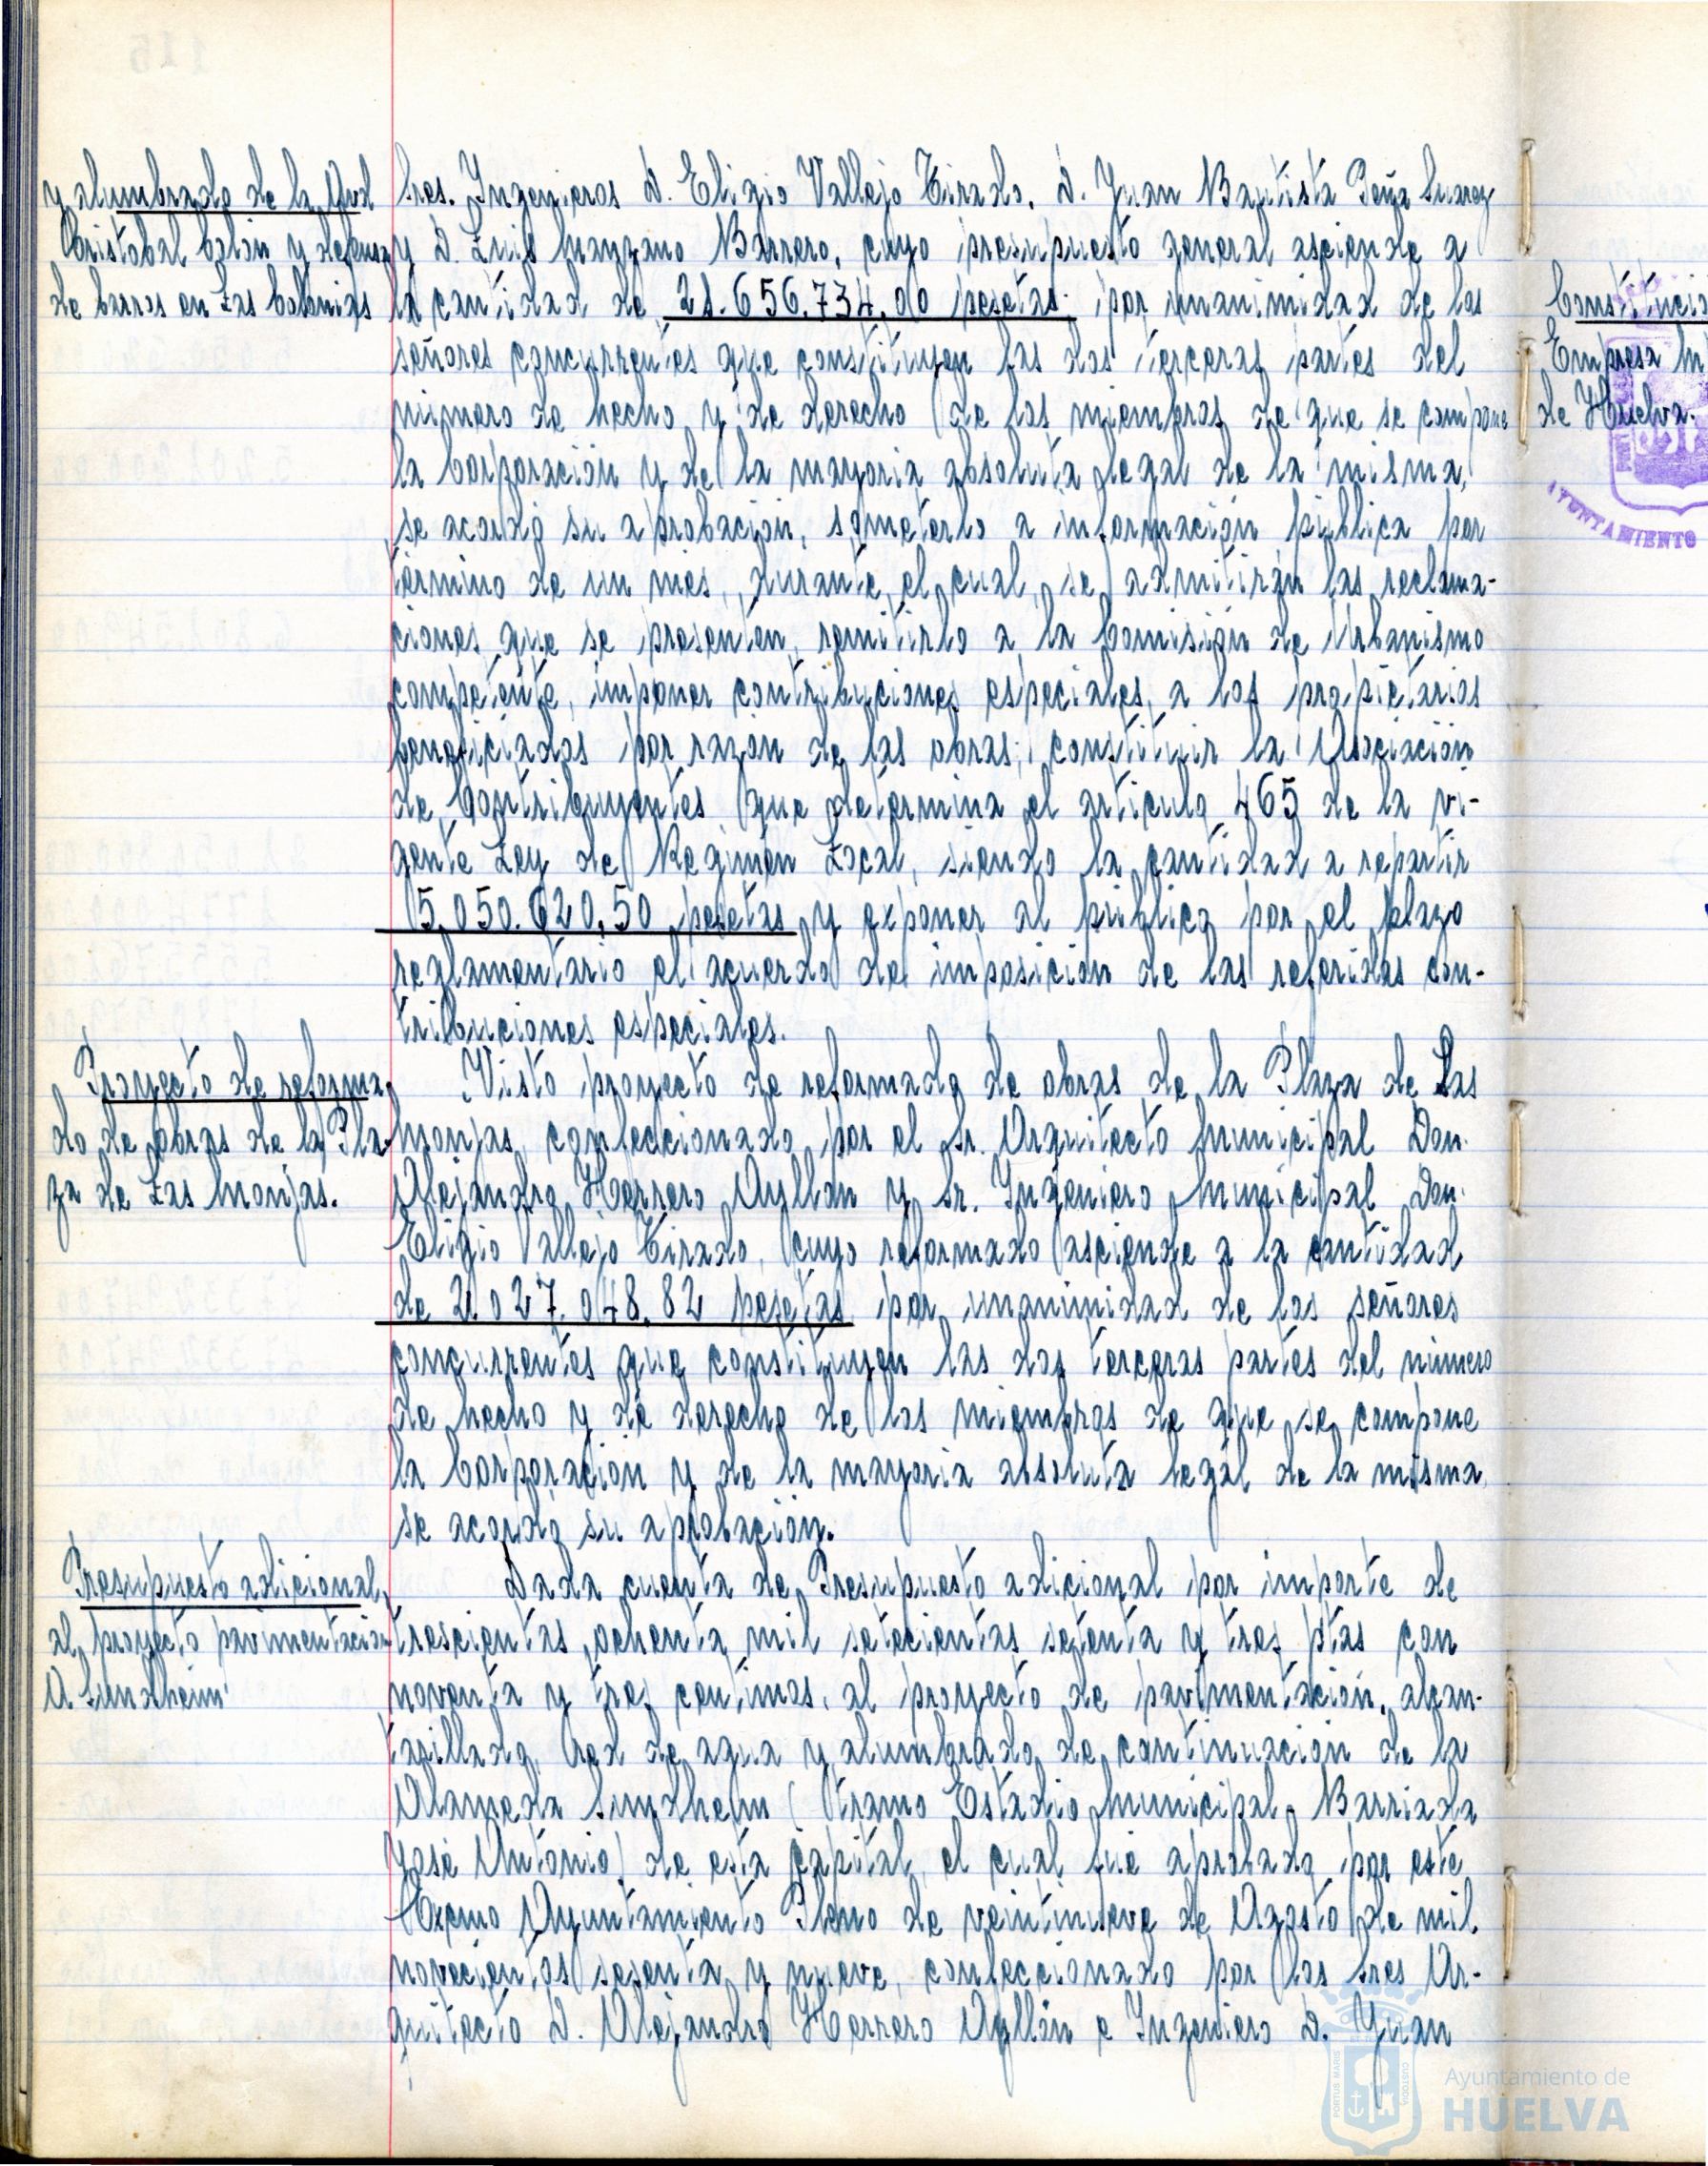 y alumbrado de la Avd
Cristobal Colon y defensa
de barros en Las Colonias
Sres. Ingenieros D. Eligio Vallejo Tirado, D. Juan Bautista Peña Suarez
y D. Luis Manzano Barrero, cuyo presupuesto general asciende a
la cantidad de 21.656.734,00 pesetas. por unanimidad de los
señores concurrentes que constituyen las dos terceras partes del
número de hecho y de derecho de los miembros de que se compone
la Corporación y de la mayoria absoluta legal de la misma,
se acordó su aprobación, someterlo a información pública por
termino de un mes, durante el cual, se admitirán las reclama-
ciones que se presenten, remitirlo a la Comisión de Urbanismo
competente, imponer contribuciones especiales, a los propietarios
beneficiados por razón de las obras; constituir la Asociación
de Contribuyentes que determina el articulo 465 de la vi-
gente Ley de Regimen Local, siendo la cantidad a repartir
5.050.620,50 pesetas y exponer al público por el plazo
reglamentario el acuerdo de imposición de las referidas con-
tribuciones especiales.
Proyecto de reforma
do de obras de la Pla-
za de Las Monjas.
Visto proyecto de reformado de obras de la Plaza de Las
Monjas, confeccionado por el Sr. Arquitecto Municipal Don
Alejandro Herrero Ayllón y Sr. Ingeniero Municipal Don
Eligio Vallejo Tirado, cuyo reformado asciende a la cantidad
de 2.027.048,82 pesetas por unanimidad de los señores
concurrentes que constituyen las dos terceras partes del número
de hecho y de derecho de los miembros de que se compone
la Corporación y de la mayoria absoluta legal de la misma,
se acordó su aprobación.
Presupuesto adicional
al proyecto pavimentacion
A. Sundheim
Dada cuenta de Presupuesto adicional por importe de
trescientas ochenta mil setecientas setenta y tres ptas con
noventa y tres centimos, al proyecto de pavimentación, alcan-
tarillado, red de agua y alumbrado de continuación de la
Alameda Sundheim (Tramo Estadio Municipal - Barriada
José Antonio) de esta capital, el cual fue aprobado por este
Excmo Ayuntamiento Pleno de veintinueve de Agosto de mil
novecientos sesenta y nueve, confeccionado por los Sres Ar-
quitecto D. Alejandro Herrero Ayllón e Ingeniero D. Juan
Empresa
de Huelva.
AYUNTAMIENTO
PORTUS MARIS
CUSTODIA
Ayuntamiento de
HUELVA